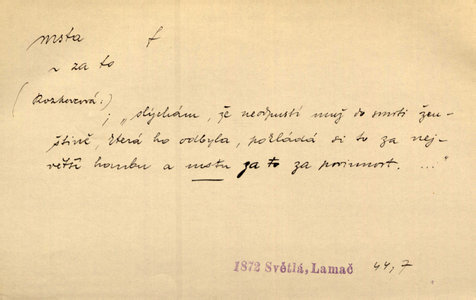 msta f
~ za to
(Rozkovcová:)
; „slýchám, že neodpustí muž do smrti žen-
štině, která ho odbyla, pokládá si to za nej-
větší hanbu a mstu za to za povinnost. ..."
1872 Světlá, Lamač 44,7